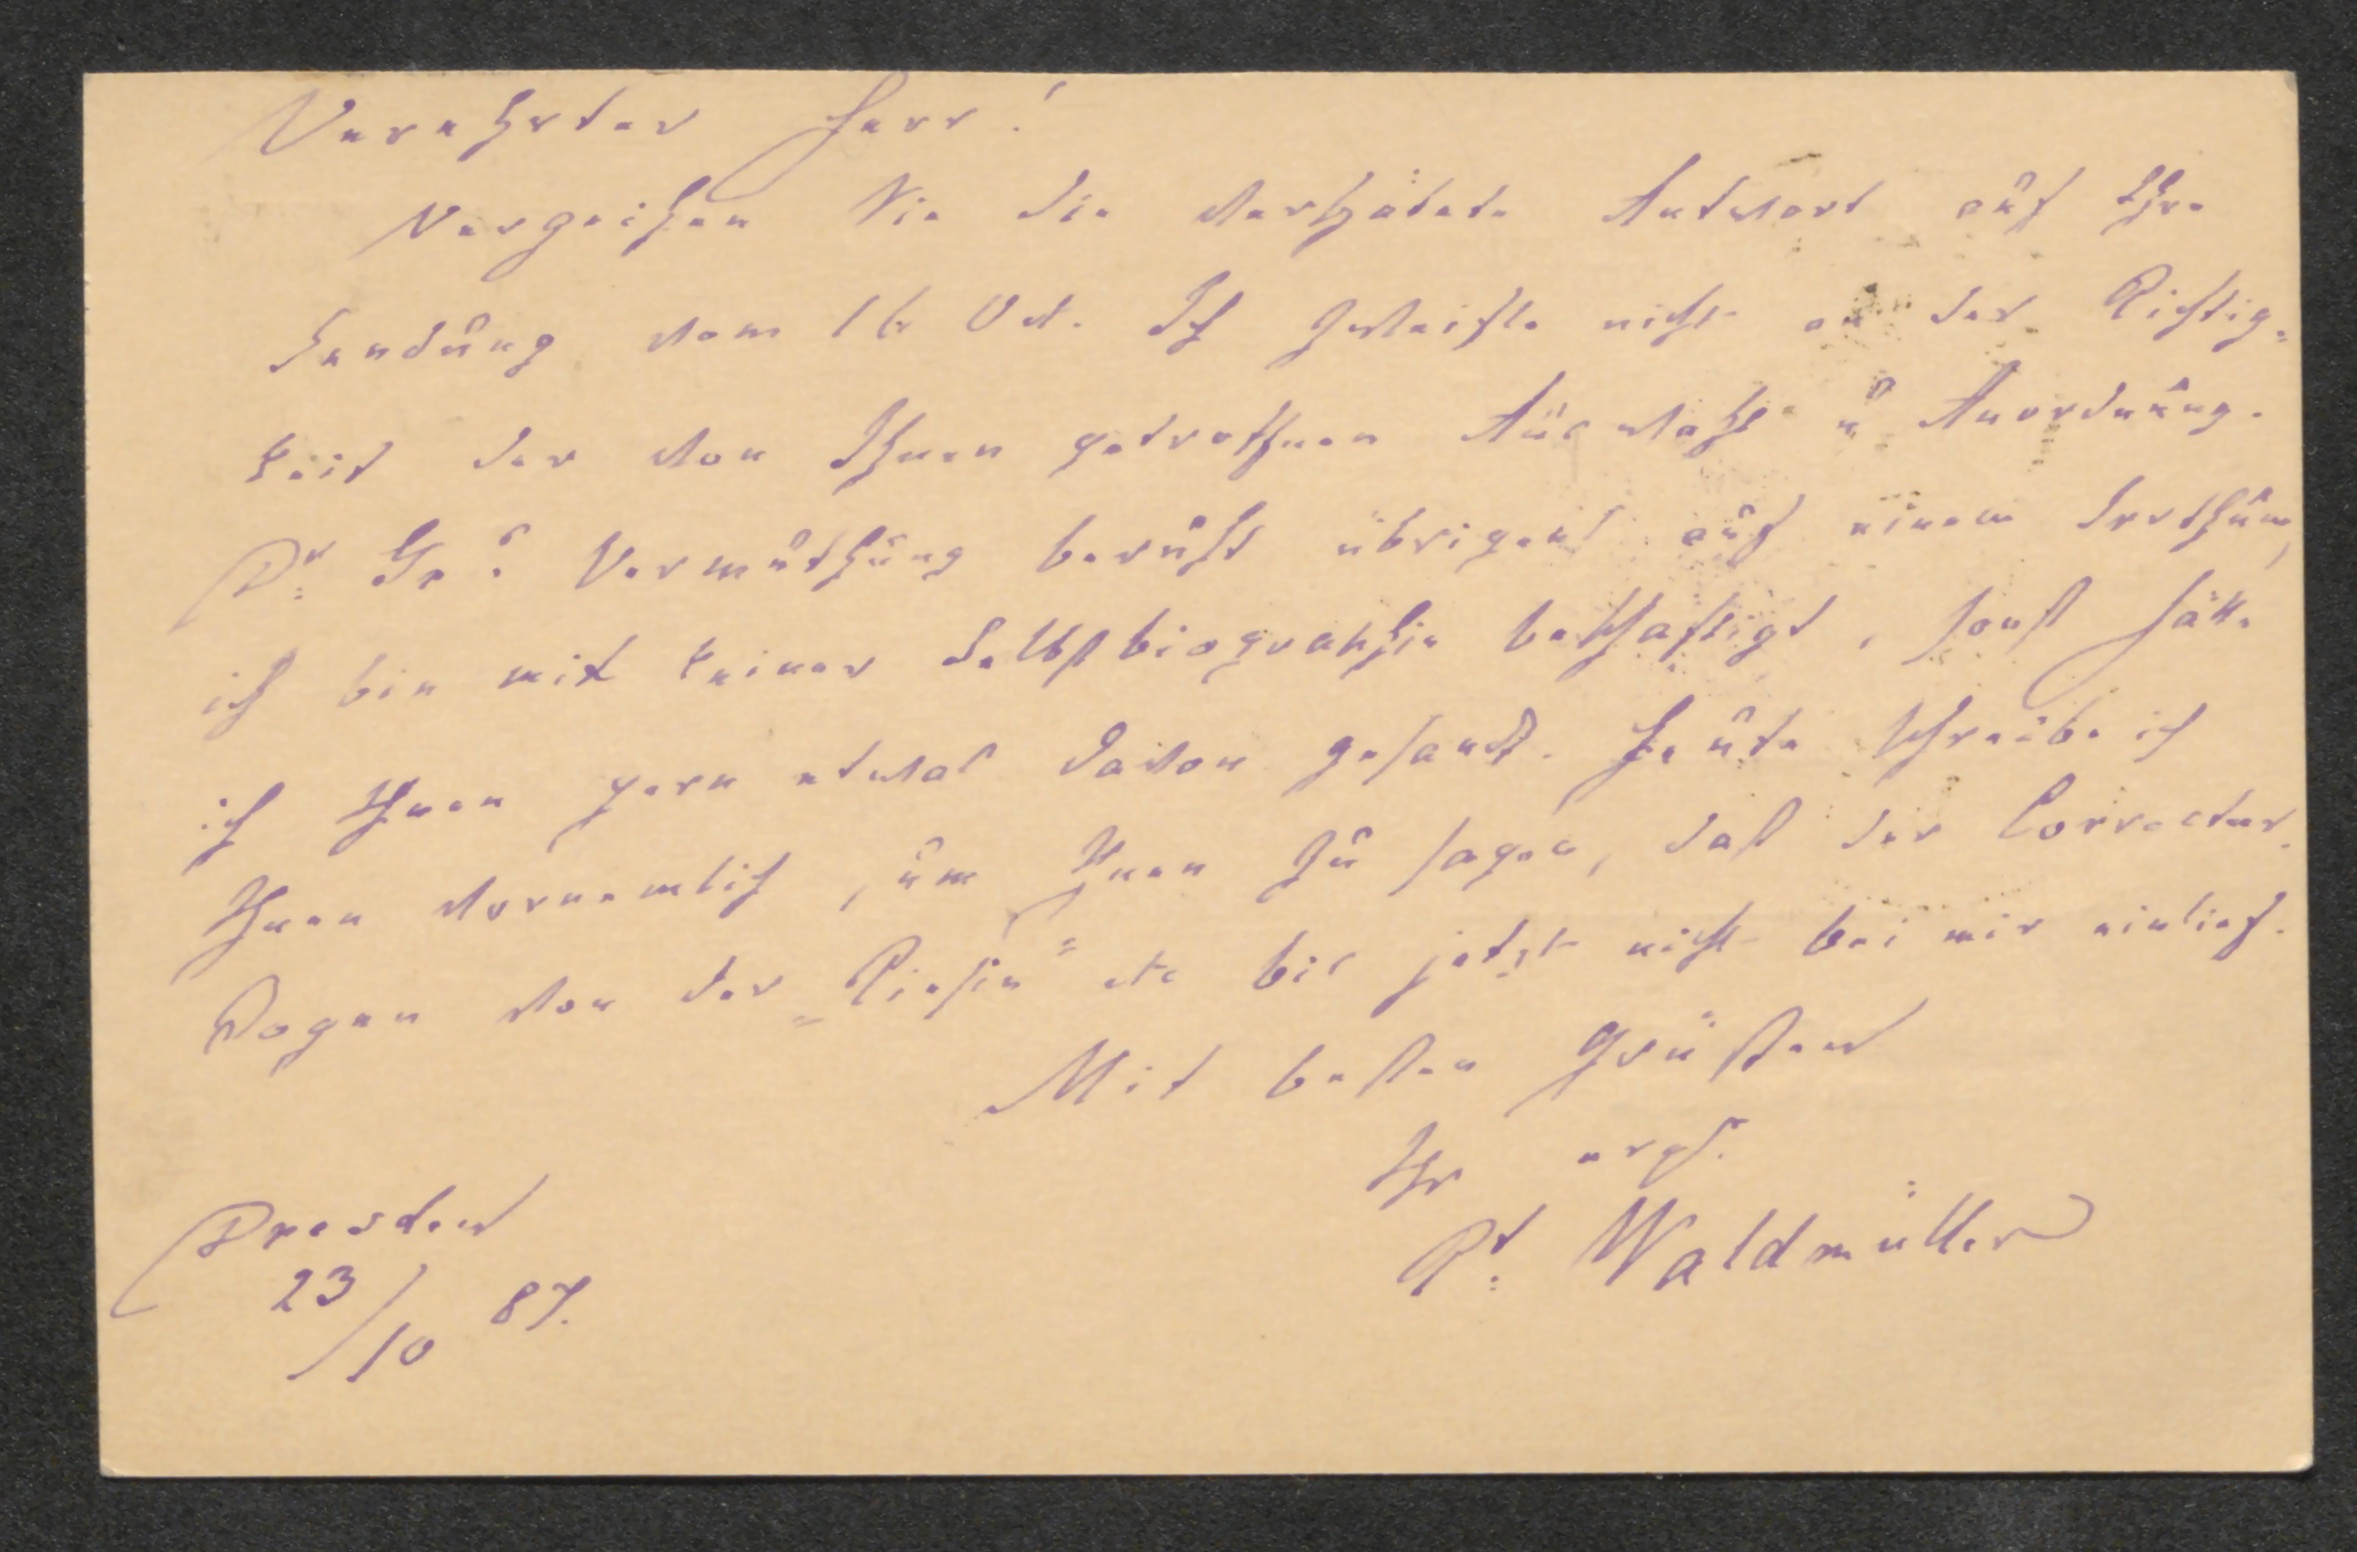 Verehrter Herr!
Vergeihen Sie die verspätete Antwort auf Ihre
Sendung vom 16 Oct. Ich zweifle nicht an der Richtig-
keit der von Ihnen getroffnen Auswahl u Anordnung.
Dr Gr's Vermuthung beruht übrigens auf einem Irrthum,
ich bin mit keiner Selbstbiographie beschäftigt, sonst hätte
ich Ihnen gern etwas davon gesandt. Heute schreibe ich
Ihnen vornemlich, um Ihnen zu sagen, daß der Correctur-
Bogen von der „Riesin“ etc bis jetzt nicht bei mir einlief.
Mit besten Grüßen
Ihr ergst.
Rt Waldmüller
Dresden
23/10 87.